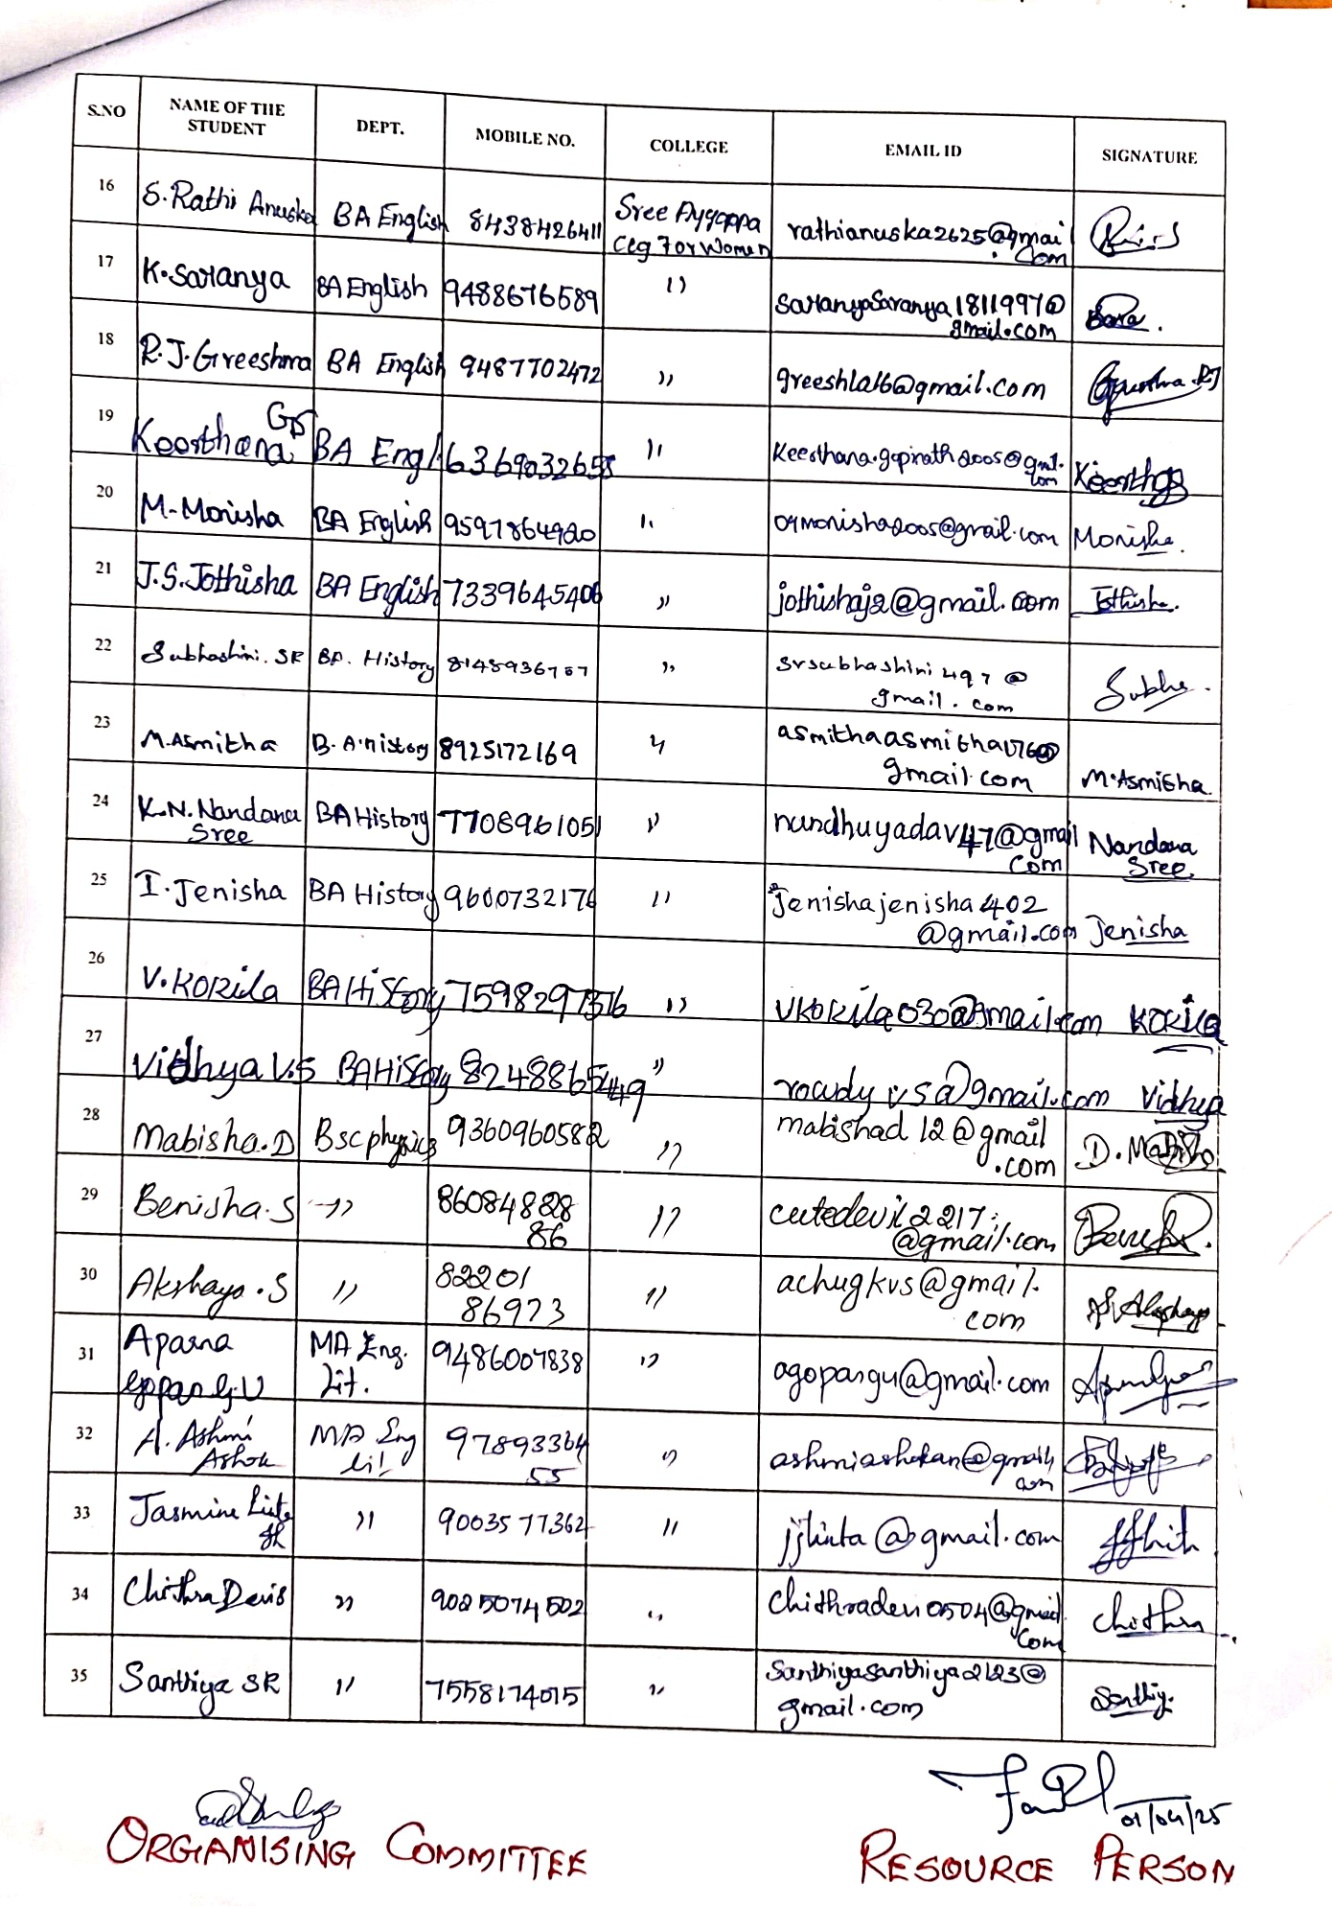 S.NO NAME OF THE STUDENT DEPT. MOBILE NO. COLLEGE EMAIL ID SIGNATURE
16 S. Rathi Anuska BA English 8438426411 Sree Ayyappa Clg For Women rathianuska2625@gmail.com
17 K. Saranya BA English 9488676589 " saranyasaranya1811997@gmail.com
18 R.J. Greeshma BA English 9487702472 " greeshla16@gmail.com
19 Keerthana GS BA Engl 6369032655 " Keerthana.gopinath2005@gmail.com
20 M. Monisha BA English 9597864920 " 09monisha2005@gmail.com Monisha.
21 J.S. Jothisha BA English 7339645406 " jothishaj2@gmail.com Jothisha.
22 Subhashini. SR BA. History 8148936757 " srsubhashini497@gmail.com Subha.
23 M. Asmitha B.A. History 8925172169 " asmithaasmitha176@gmail.com M. Asmitha
24 K.N. Nandana Sree BA History 7708961051 " nandhuyadav47@gmail.com Nandana Sree
25 I. Jenisha BA History 9600732176 " jenishajenisha402@gmail.com Jenisha
26 V. KOKila BA History 7598297376 " vkokila030@gmail.com KOKila
27 Vidhya V.S BA History 8248865449 " rowdyvs@gmail.com Vidhya
28 Mabisha. D Bsc physics 9360960582 " mabishad12@gmail.com D. Mabisha
29 Benisha. S " 8608482886 " cutedevil2217@gmail.com
30 Akshaya. S " 8220186973 " achugkvs@gmail.com
31 Aparna Goppan G.U MA Eng. Lit. 9486007838 " agopangu@gmail.com
32 A. Ashmi Ashok MA Eng lit 9789336455 " ashmiashokan@gmail.com
33 Jasmine " 9003577362 " jjlinta@gmail.com
34 Chithra Devi S " 9025074502 " chithradevi0504@gmail.com Chithra
35 Santhiya SR " 7558174015 " Santhiyasanthiya2123@gmail.com Santhiya
01/04/25
ORGANISING COMMITTEE RESOURCE PERSON